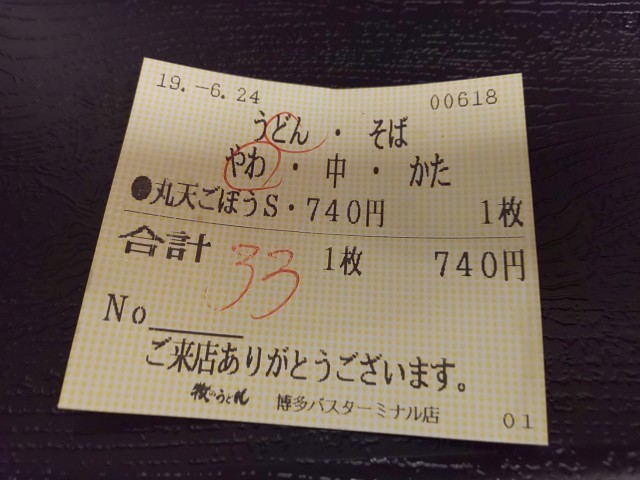 19.-6.24 00618
うどん・そば
やわ・中・かた
●丸天ごぼうS・740円 1枚
合計 33 1枚 740円
No
ご来店ありがとうございます。
牧のうどん 博多バスターミナル店
01